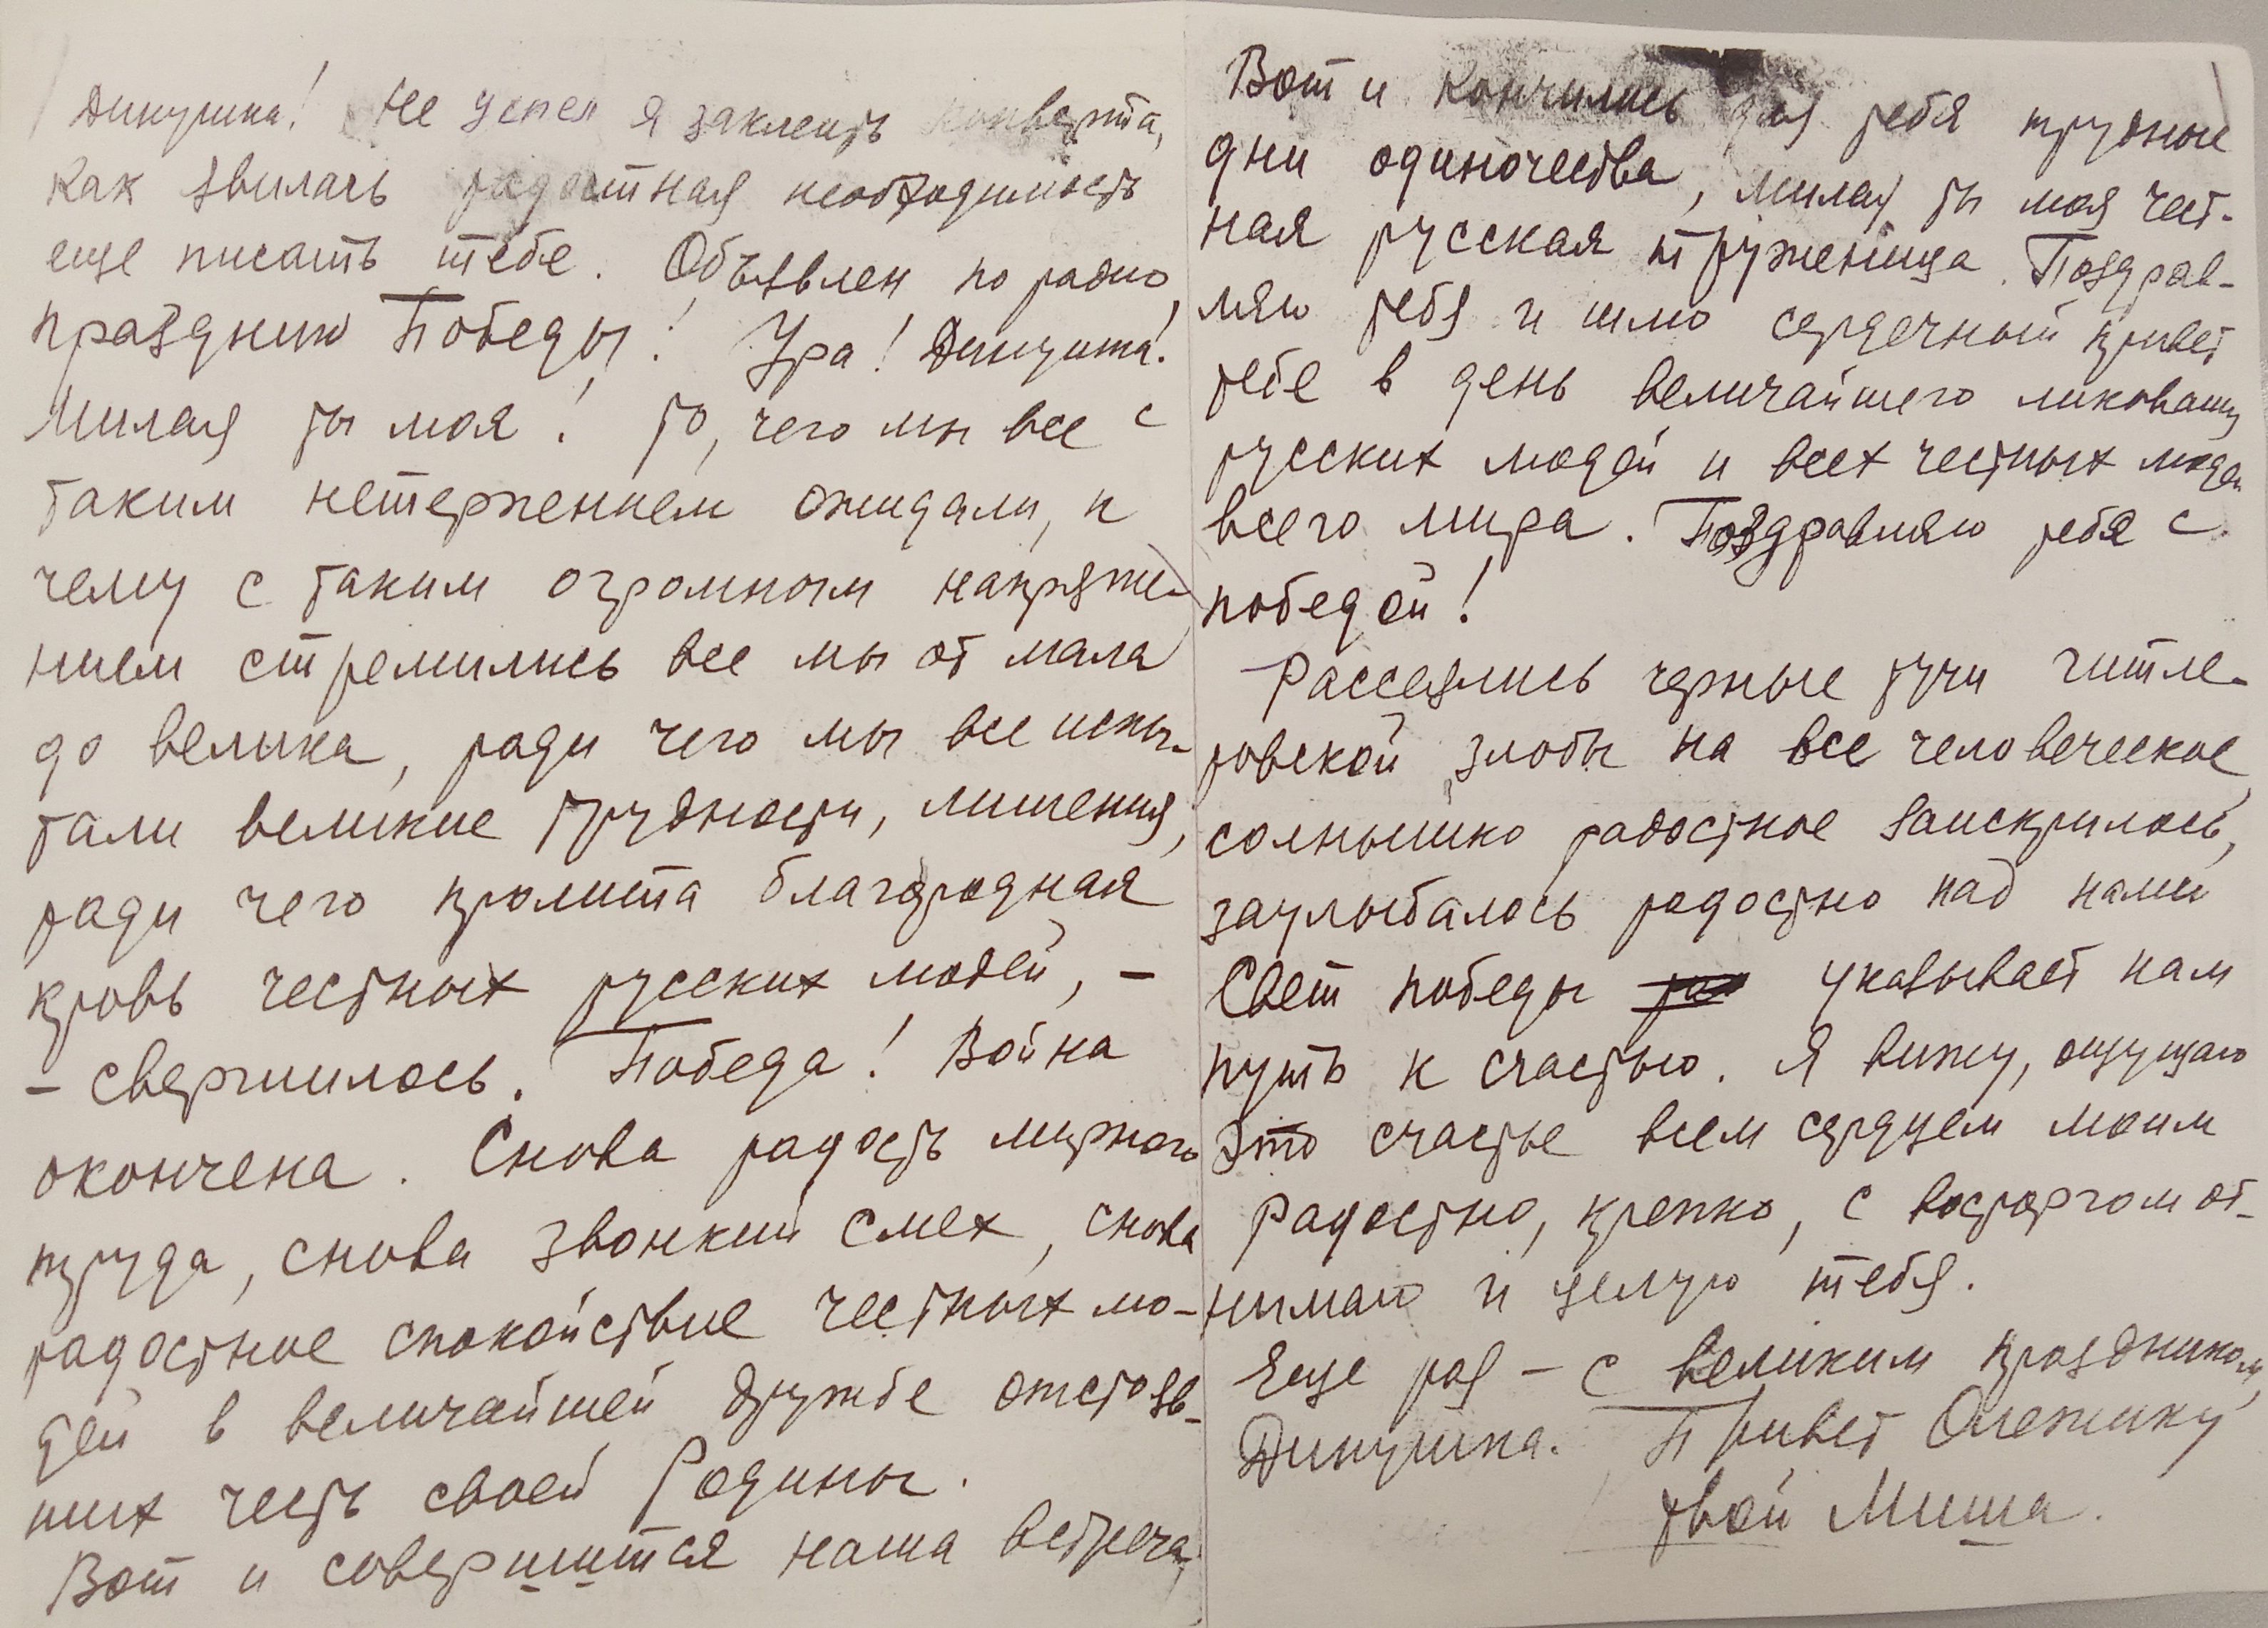 Динушка! Не успел я заклеить конверта,
как явилась радостная необходимость
еще писать тебе. Объявлен по радио,
праздник Победы! Ура! Динушка!
Милая ты моя! То, чего мы все с
таким нетерпением ожидали, к
чему с таким огромным напряже-
нием стремились все мы от мала
до велика, ради чего мы все испы-
тали великие трудности, лишения,
ради чего пролита благородная
кровь честных русских людей, -
- свершилось. Победа! Война
окончена. Снова радость мирного
труда, снова звонкий смех, снова
радостное спокойствие честных лю-
дей в величайшей дружбе отстояв-
ших честь своей Родины.
Вот и совершится наша встреча,
Вот и кончились для тебя трудные
дни одиночества, милая ты моя чест-
ная русская труженица. Поздрав-
ляю тебя и шлю сердечный привет
тебе в день величайшего ликования
русских людей и всех честных людей
всего мира. Поздравляю тебя с
победой!
Рассеялись черные тучи гитле-
ровской злобы на все человеческое,
солнышко радостное заискрилось,
заулыбалось радостно над нами
Свет победы указывает нам
путь к счастью. Я вижу, ощущаю
это счастье всем сердцем моим
Радостно, крепко, с восторгом об-
нимаю и целую тебя.
Еще раз - с великим праздником,
Динушка. Привет Олежику
Твой Миша.